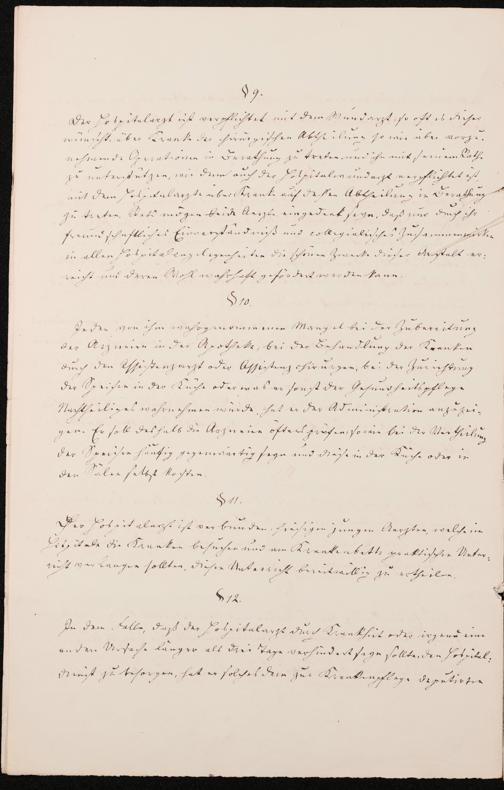 § 9.
Der Hospitalarzt ist verpflichtet mit dem Wundarzt, so oft es dieser
wünscht, über Kranke der chirurgischen Abtheilung so wie über vorzu-
nehmende Operationen in Berathung zu treten und ihn mit seinem Rathe
zu unterstützen, wie denn auch der Hospitalwundarzt verpflichtet ist
mit dem Hospitalarzte über Kranke auf dessen Abtheilung in Berathung
zu treten. Stets mögen beide Aerzte eingedenk seyn, daß nur durch ihr
freundschaftliches Einverständniß und collegialisches Zusammenwirken
in allen Hospitalangelegenheiten die schönen Zwecke dieser Anstalt er-
reicht und deren Wohl wahrhaft gefördert werden kann.
§ 10.
Jeden von ihm wahrgenommenen Mangel bei der Zubereitung
der Arzneien in der Apotheke, bei der Behandlung der Kranken
durch den Assistenzarzt oder Assistenzchirurgen, bei der Zurichtung
der Speisen in der Küche oder was er sonst der Gesundheitspflege
Nachtheiliges wahrnehmen würde, hat er der Administration anzuzei-
gen. Er soll deshalb die Arzneien öfters prüfen, sowie bei der Vertheilung
der Speisen häufig gegenwärtig seyn und diese in der Küche oder in
den Sälen selbst kosten.
§ 11.
Der Hospitalarzt ist verbunden, hiesigen jungen Aerzten, welche im
Hospitale die Kranken besuchen und am Krankenbette praktischen Unter-
richt verlangen sollten, diesen Unterricht bereitwillig zu ertheilen.
§ 12.
In dem Falle, daß der Hospitalarzt durch Krankheit oder irgend eine
andere Ursache länger als drei Tage verhindert seyn sollte, den Hospital-
dienst zu besorgen, hat er solches dem zur Krankenpflege deputirten